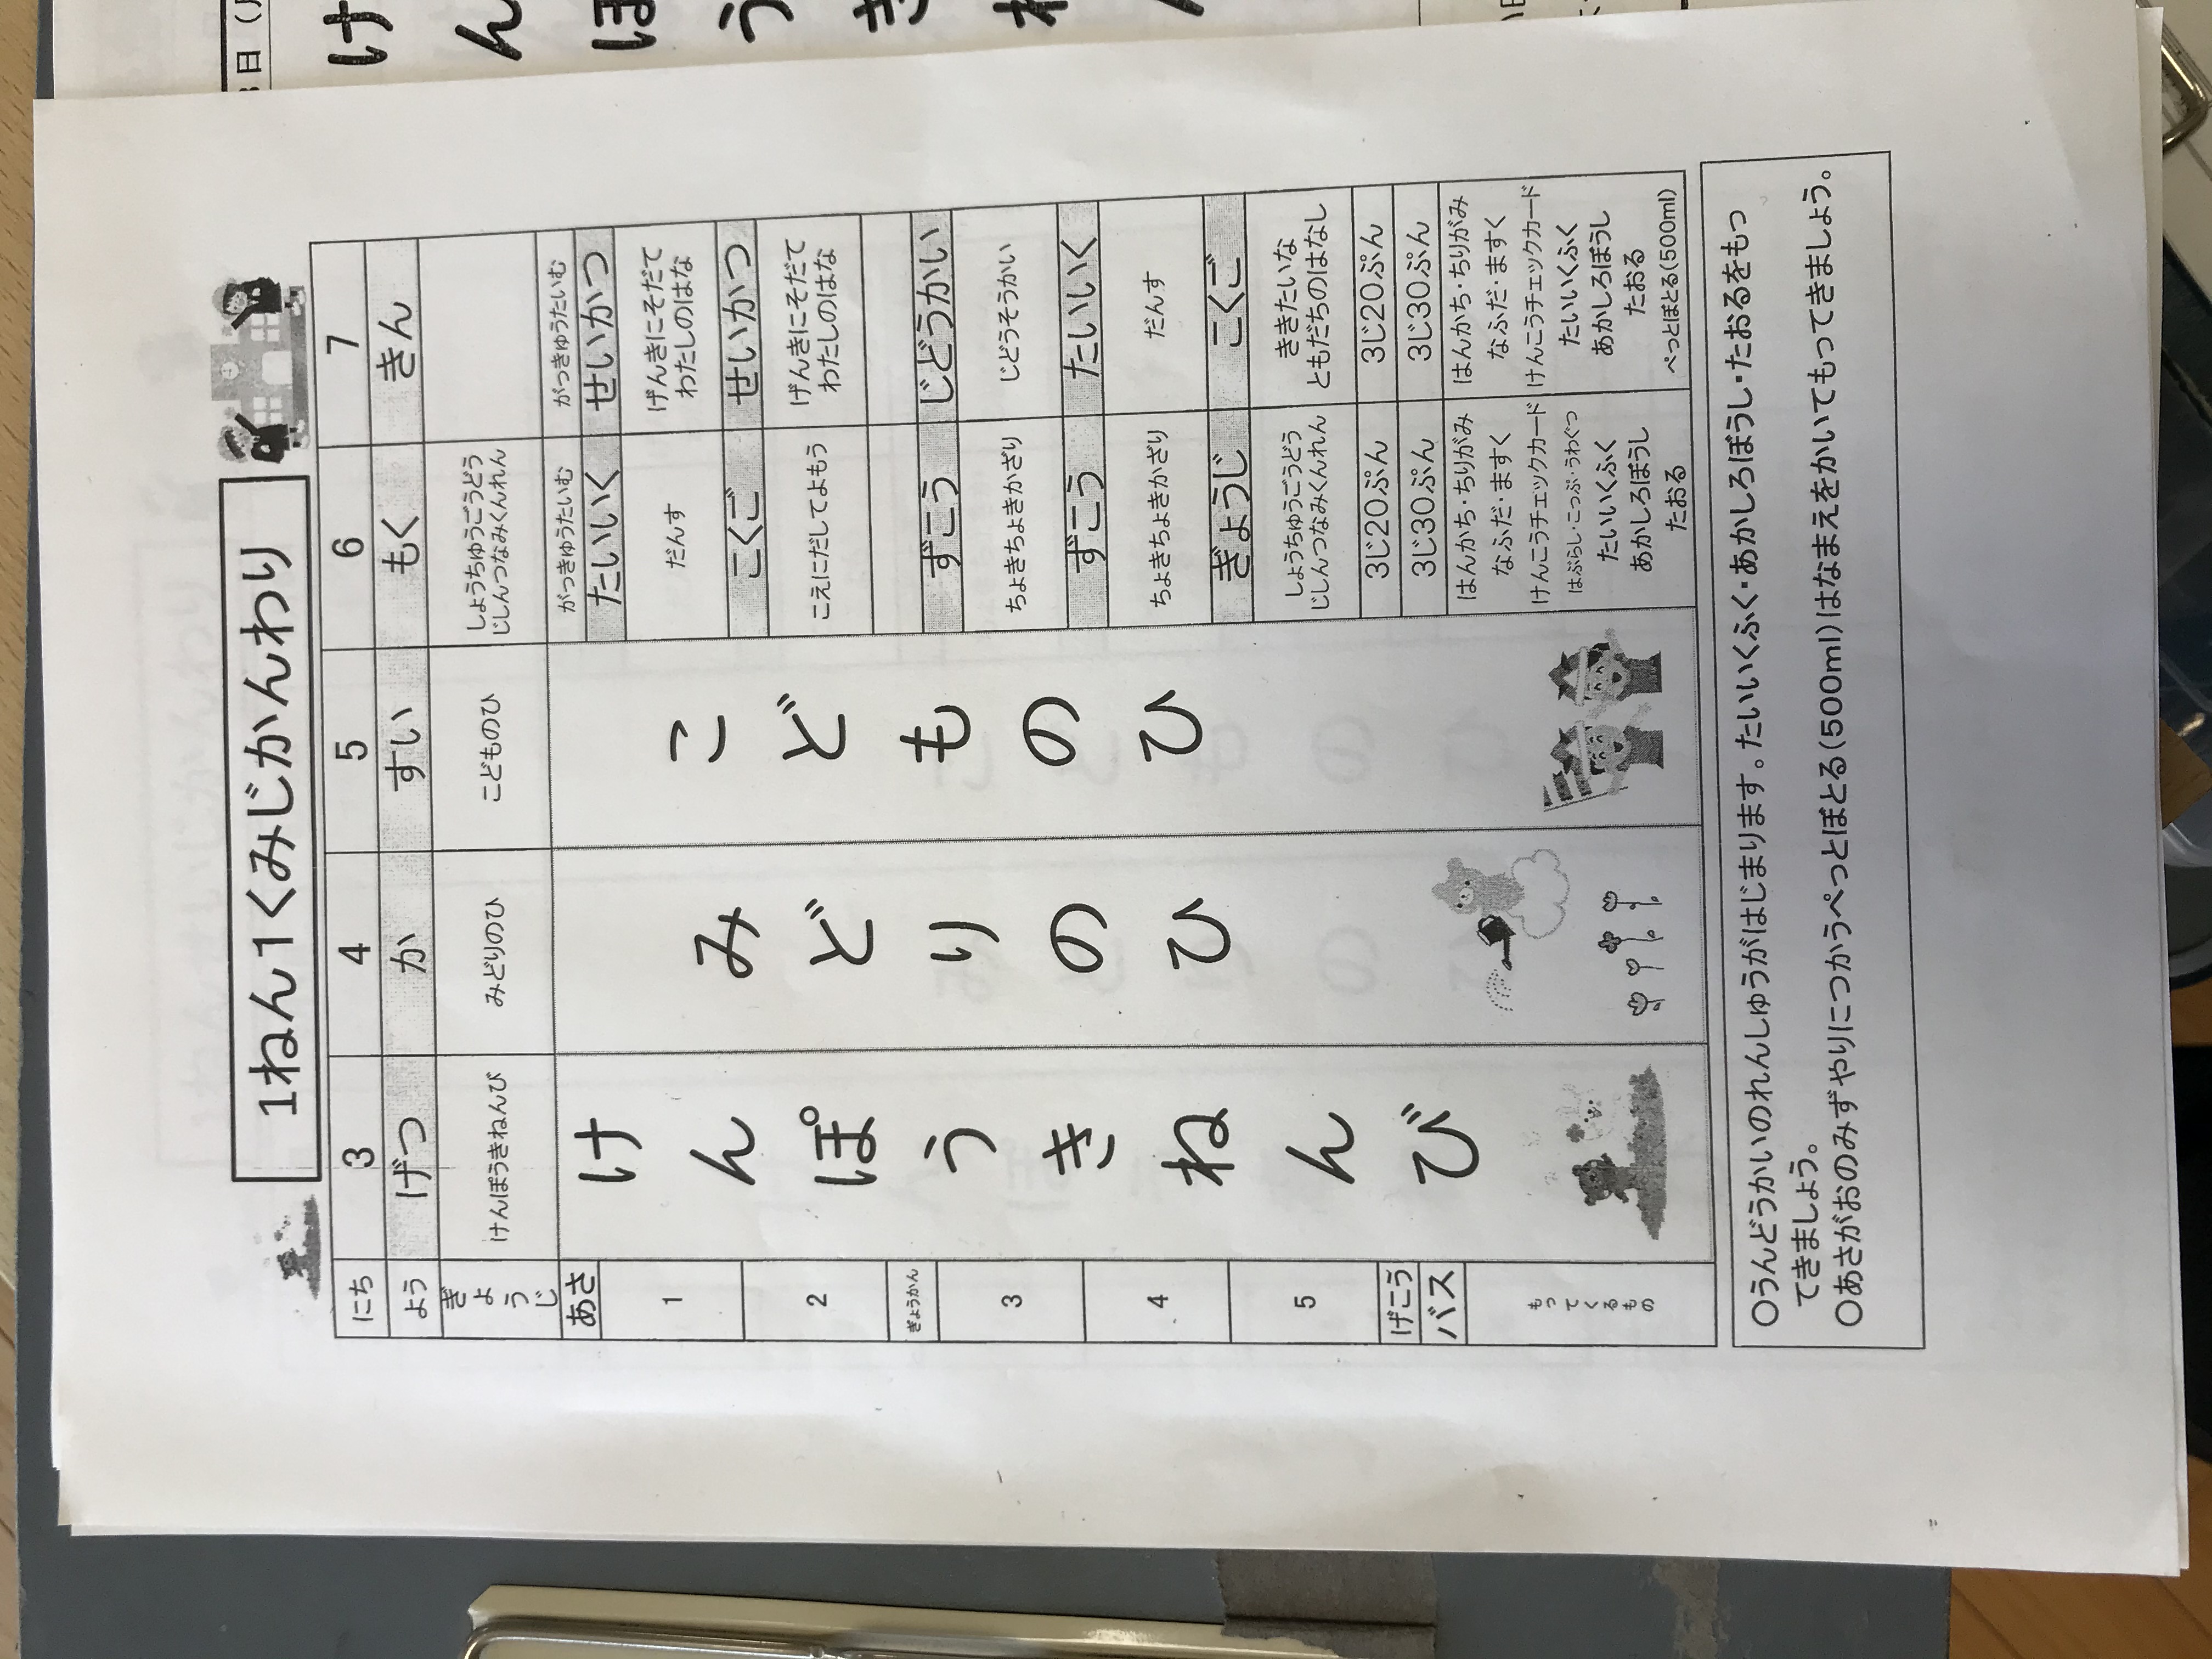 1ねん1くみじかんわり
にち 3 4 5 6 7
よう げつ か すい もく きん
ぎょうじ けんぽうきねんび みどりのひ こどものひ しょうちゅうごうどう
じしんつなみくんれん
あさ がっきゅうたいむ がっきゅうたいむ
けんぽうきねんび
みどりのひ
こどものひ
1 たいいく せいかつ
だんす げんきにそだて
わたしのはな
2 こくご せいかつ
こえにだしてよもう げんきにそだて
わたしのはな
ぎょうかん
3 ずこう じどうかい
ちょきちょきかざり じどうそうかい
4 ずこう たいいく
ちょきちょきかざり だんす
5 ぎょうじ こくご
しょうちゅうごうどう ききたいな
じしんつなみくんれん ともだちのはなし
げこう 3じ20ぷん 3じ20ぷん
バス 3じ30ぷん 3じ30ぷん
もってくるもの
はんかち・ちりがみ はんかち・ちりがみ
なふだ・ますく なふだ・ますく
けんこうチェックカード けんこうチェックカード
はぶらし・こっぷ・うわぐつ たいいくふく
たいいくふく あかしろぼうし
あかしろぼうし たおる
たおる ぺっとぼとる(500ml)
○うんどうかいのれんしゅうがはじまります。たいいくふく・あかしろぼうし・たおるをもっ
てきましょう。
○あさがおのみずやりにつかうぺっとぼとる(500ml)はなまえをかいてもってきましょう。